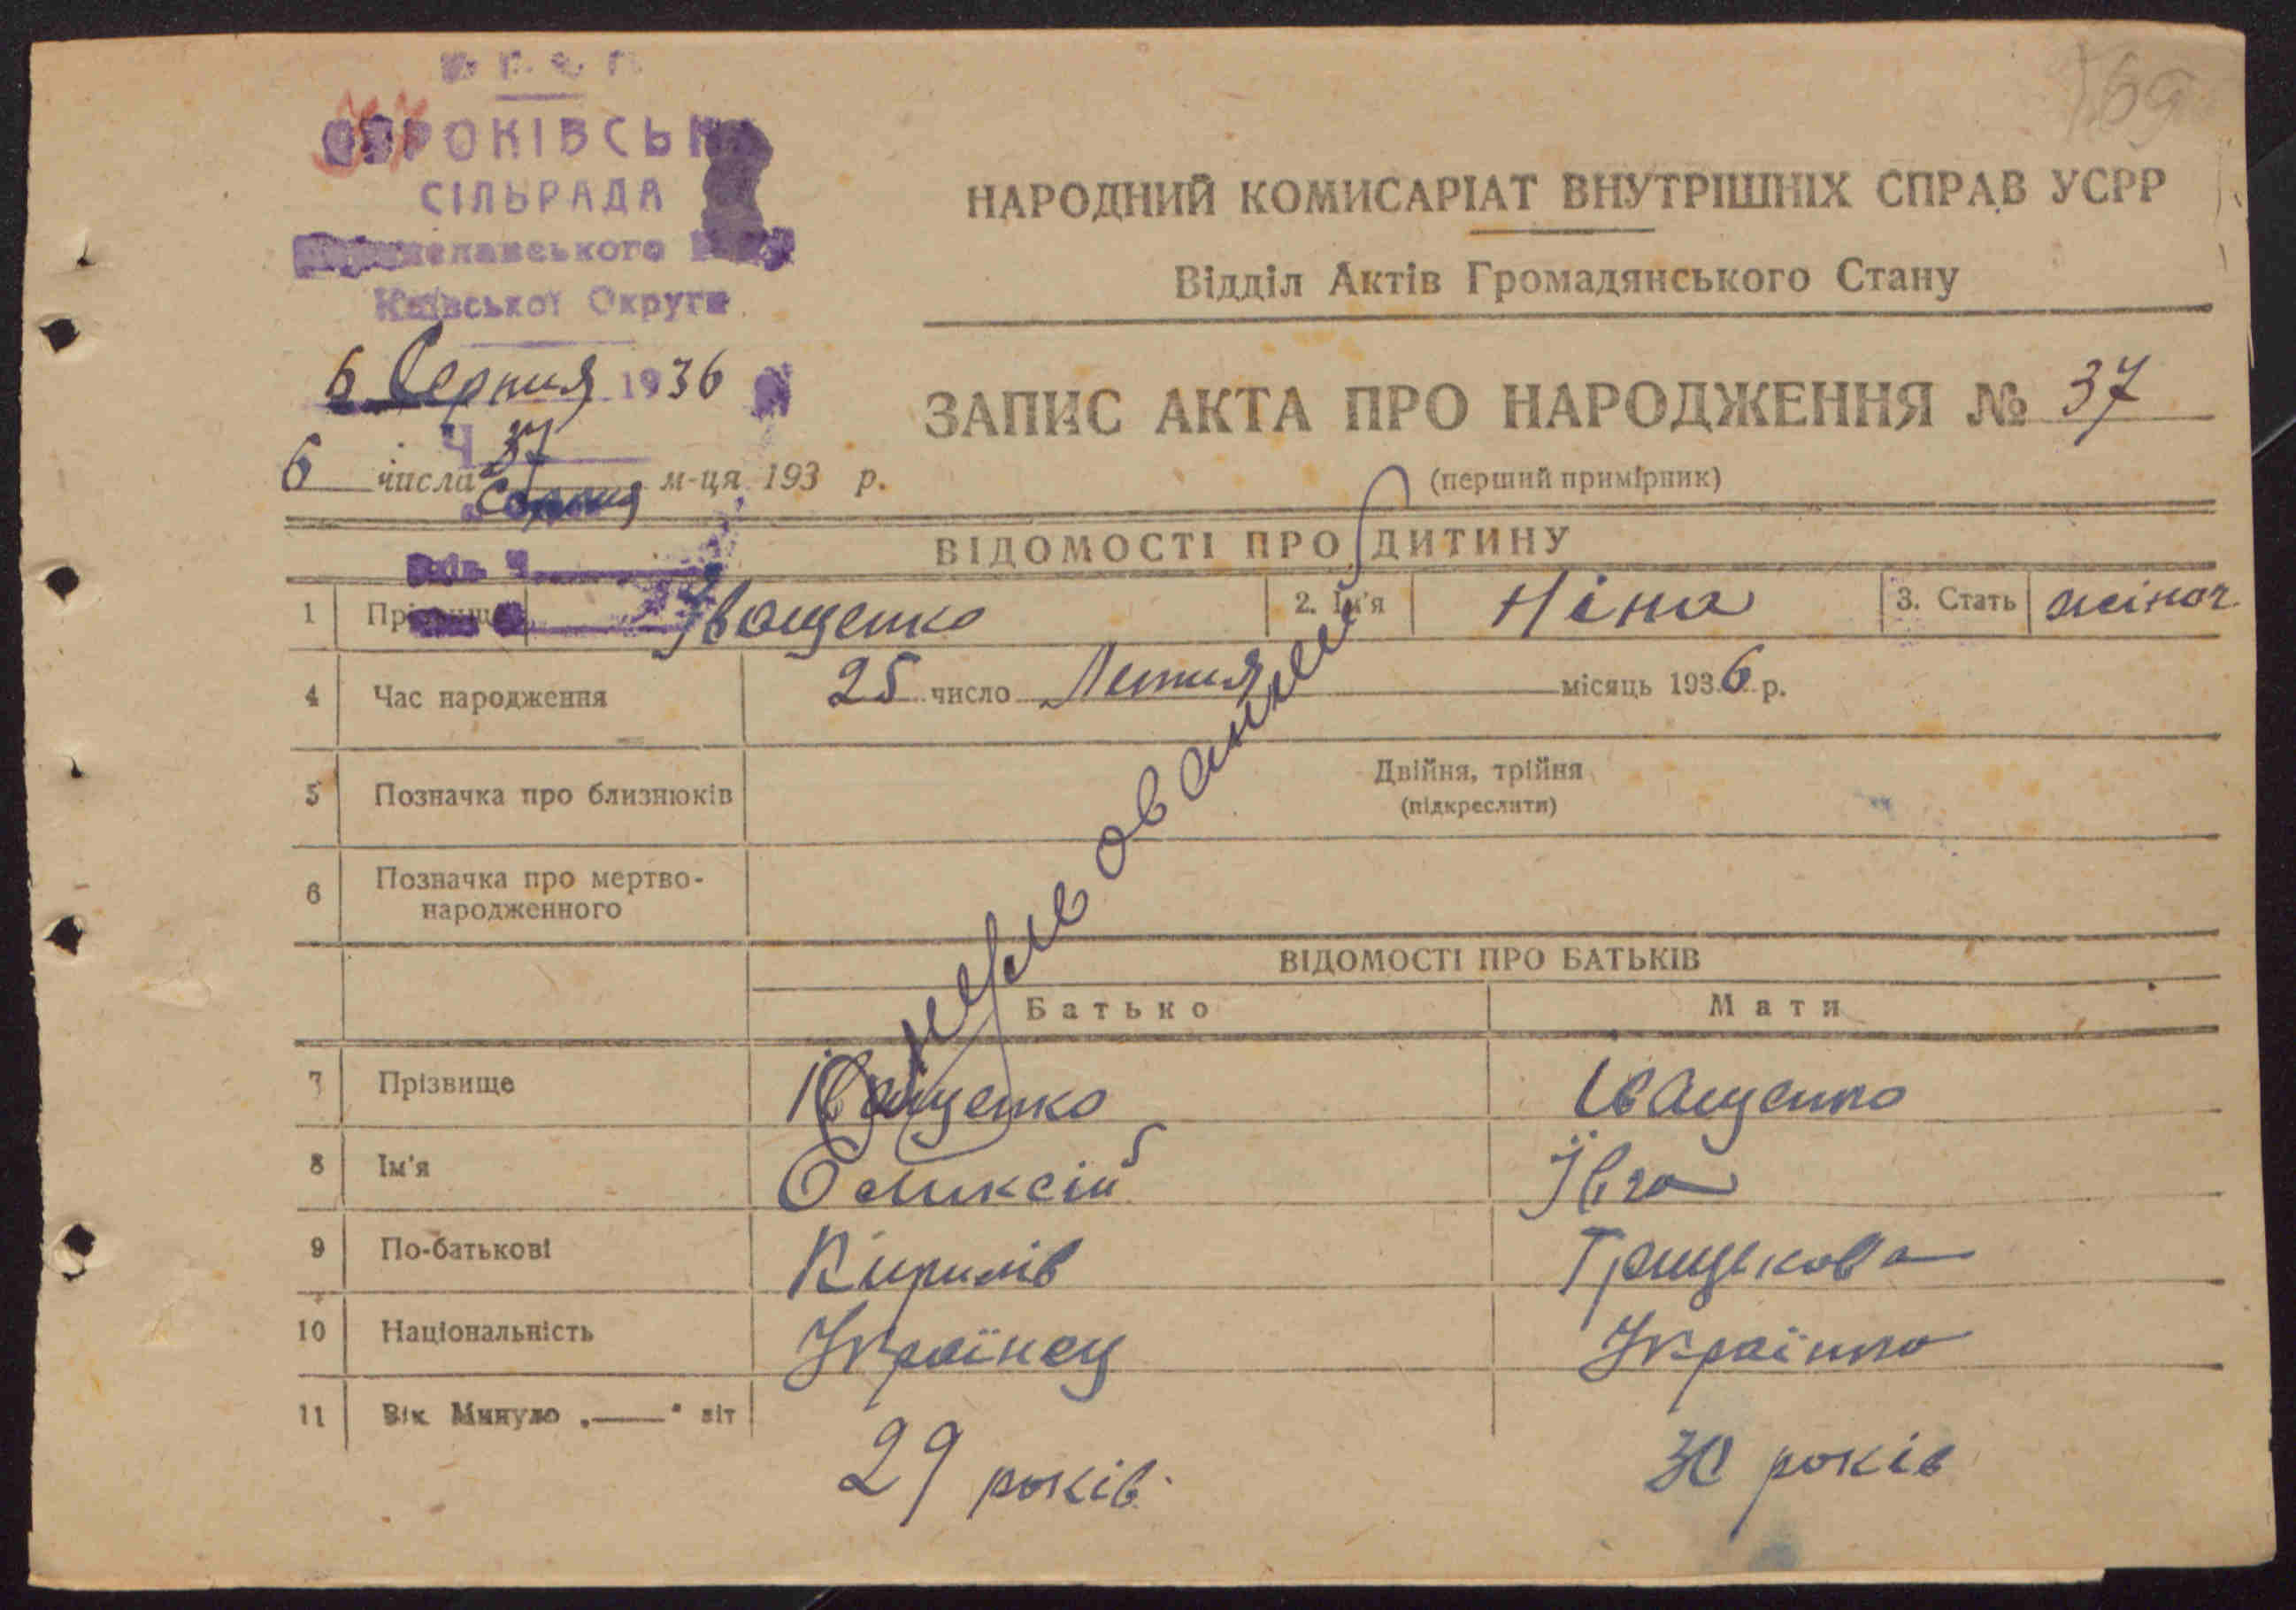 У.С.Р.Р.
СІЛЬРАДА
Київської Округи
6 Серпня 1936
Ч 37
6 числа Серпня м-ця 193 р.
169
НАРОДНИЙ КОМИСАРІАТ ВНУТРІШНІХ СПРАВ УСРР
Відділ Актів Громадянського Стану
ЗАПИС АКТА ПРО НАРОДЖЕННЯ № 37
(перший примірник)
ВІДОМОСТІ ПРО ДИТИНУ
1 Прізвище Іващенко 2. Ім'я Ніна 3. Стать жіноч.
4 Час народження 25 число Липня місяць 1936 р.
5 Позначка про близнюків Двійня, трійня
(підкреслити)
6 Позначка про мертво-
народженного
ВІДОМОСТІ ПРО БАТЬКІВ
Батько Мати
7 Прізвище Іващенко Іващенко
8 Ім'я Олексій Ївга
9 По-батькові Кирилів Грицькова
10 Національність Українец Українка
11 Вік Минуло „——" літ 29 років. 30 років